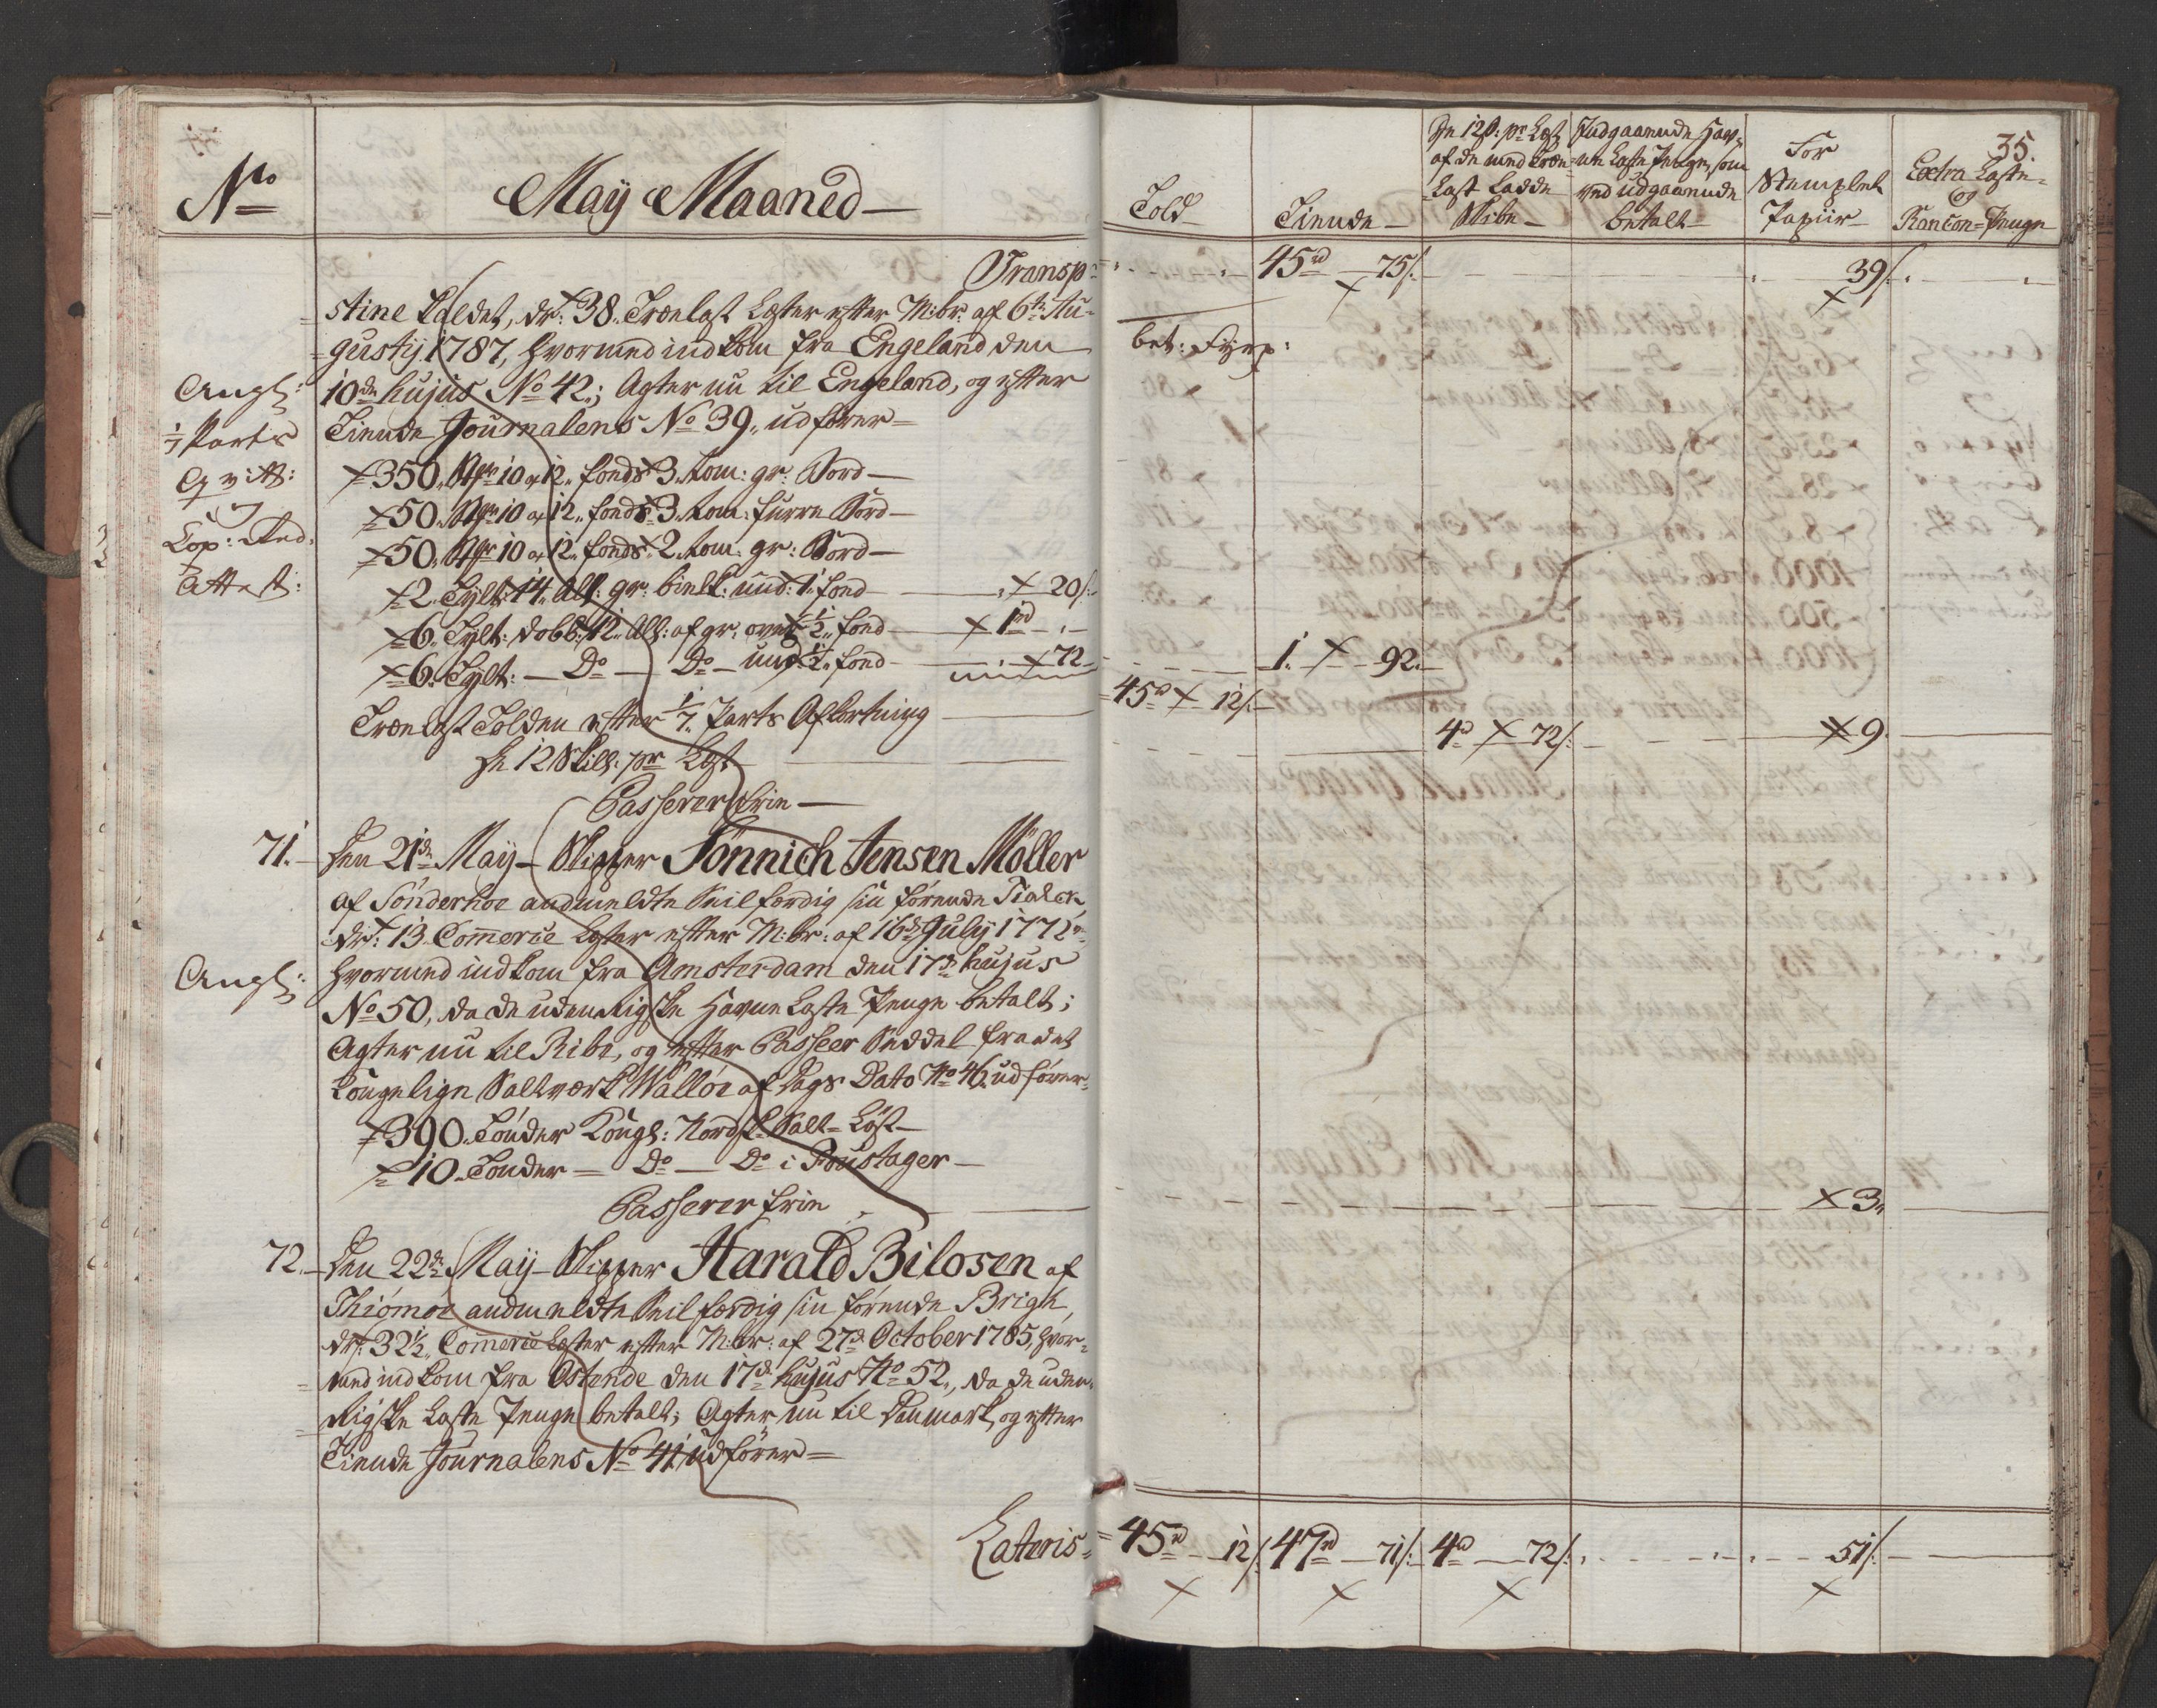 No
May Maaned
Transp:
stine kaldet, dr: 38. Trælast Læster efter M:br: af 6te Au-
gustij 1787, hvormed indkom fra Engeland den
10de hujus No 42; Agter nu til Engeland, og efter
Tiende Journalens No 39, udfører
Angl:
1/7 Parts
Qvitt:
og
Cop: And.
Attest:
350. 10 a 12 fonds 3. tom: gr: Bord
50. 10 a 12 fonds 3. tom: furre Bord
50. 10 a 12 fonds 2 tom: gr: Bord
2. Tylt: 14 All: gr: bielk: und: 1 fond 20/:
6. Tylt: dobb: 12 All: af gr: over 1/2 fond 1rd
6. Tylt: Do Do und: 1/2 fond 72
Trælast Tolden efter 1/7 Parts Afkortning
De 12 Skill: pr Læst
Passerer frie
71. Den 21de Maij Skipper Sönnich Jensen Möller
af Sönderhoe andmeldte Seilfærdig sin førende
dr: 13 Comerce Læster efter M:br: af 16de Julij 1772
hvormed indkom fra Amsterdam den 17de hujus
Angl:
No 50, da de udenrigske Havne Laste Penge betalt;
Agter nu til Ribe, og efter Passeer Seddel fra det
Kongelige Saltværk Walløe af Dags Dato No 46 udfører
390. Tønder Kongl: Nordsk Salt Løst
10. Tønder Do Do i Foustager
Passerer frie
72. Den 22de Maij Skipper Harald Bilosen af
Thiömöe andmeldte Seilfærdig sin førende Brigh,
dr: 32 1/2 Comerce Læster efter M:br: af 27de October 1785, hvor-
med indkom fra Ostende den 17de hujus No 52, da de uden-
rigske Laste Penge betalt; Agter nu til Danmark, og efter
Tiende Journalens No 41 udfører
Lateris
35.
Told
Tiende
De 12 s: pr Læst af de med Træ-Last ladde Skibe
Indgaaende Havne Laste Penge, som ved udgaaende betalt
For Stemplet Papiir
Extra Laste og Rançon-Penge
45rd 75/: 39/:
bet: Fyrp:
1. 92.
45rd 12/:
4rd 72/: 9.
3.
45rd 12/: 47rd 71/: 4rd 72/: 51/: